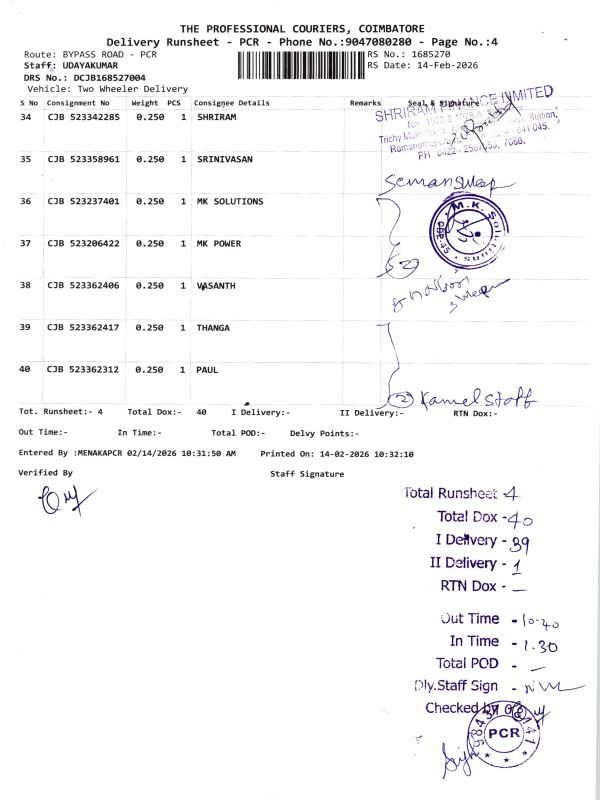 THE PROFESSIONAL COURIERS, COIMBATORE
Delivery Runsheet - PCR - Phone No.:9047080280 - Page No.:4
Route: BYPASS ROAD - PCR
RS No.: 1685270
Staff: UDAYAKUMAR
RS Date: 14-Feb-2026
DRS No.: DCJB168527004
Vehicle: Two Wheeler Delivery
S No Consignment No Weight PCS Consignee Details Remarks Seal & Signature
34 CJB 523342285 0.250 1 SHRIRAM
SHRIRAM FINANCE LIMITED
35 CJB 523358961 0.250 1 SRINIVASAN
36 CJB 523237401 0.250 1 MK SOLUTIONS
M.K. Solutions
CBE-45
37 CJB 523206422 0.250 1 MK POWER
2
38 CJB 523362406 0.250 1 VASANTH
39 CJB 523362417 0.250 1 THANGA
40 CJB 523362312 0.250 1 PAUL
2 Kamel Staff
Tot. Runsheet:- 4 Total Dox:- 40 I Delivery:- II Delivery:- RTN Dox:-
Out Time:- In Time:- Total POD:- Delvy Points:-
Entered By :MENAKAPCR 02/14/2026 10:31:50 AM Printed On: 14-02-2026 10:32:10
Verified By Staff Signature
Total Runsheet 4
Total Dox - 40
I Delivery - 39
II Delivery - 1
RTN Dox - —
Out Time - 10.40
In Time - 1.30
Total POD - —
Dly.Staff Sign -
Checked by
PCR